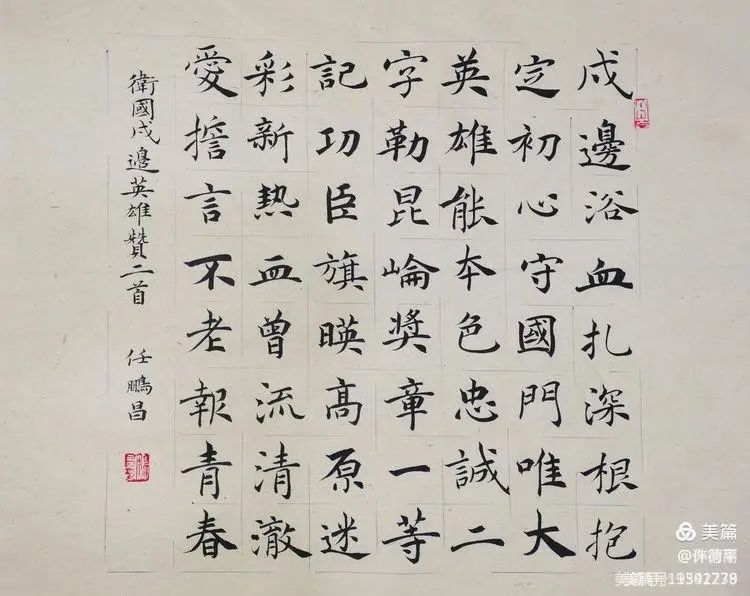 戍邊浴血扎深根抱
定初心守國門唯大
英雄能本色忠誠二
字勒昆崙獎章一等
記功臣旗暎高原迷
彩新熱血曾流清澈
愛擔言不老報青春
衛國戍邊英雄贊二首 任鵬昌
美篇
@许德平